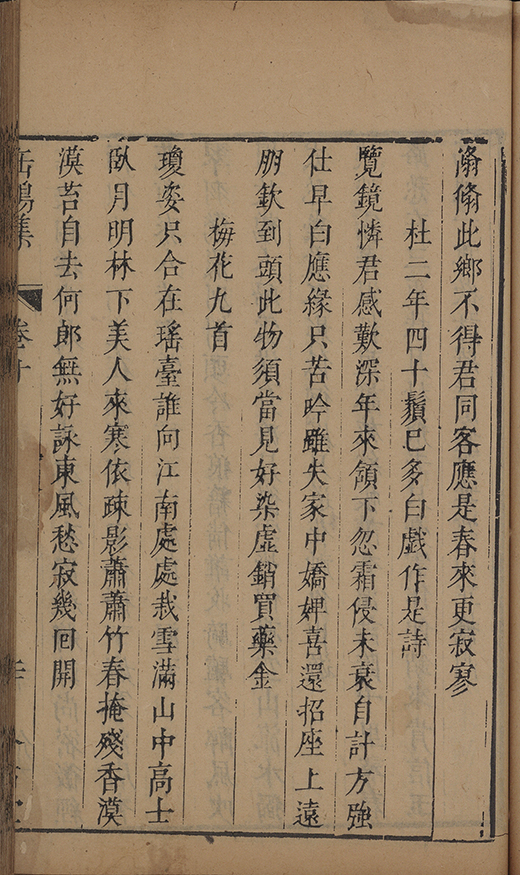 翛翛此鄉不得君同客應是春來更寂寥
杜二年四十鬚已多白戲作是詩
覽鏡憐君感歎深年來頷下忽霜侵未衰自計方強
仕早白應緣只苦吟雖失家中嬌婢喜還招座上遠
朋欽到頭此物須當見好染虛銷買藥金
梅花九首
瓊姿只合在瑤臺誰向江南處處栽雪滿山中高士
臥月明林下美人來寒依疎影蕭蕭竹春掩殘香漠
漠苔自去何郎無好詠東風愁寂幾回開
缶鳴集
卷十